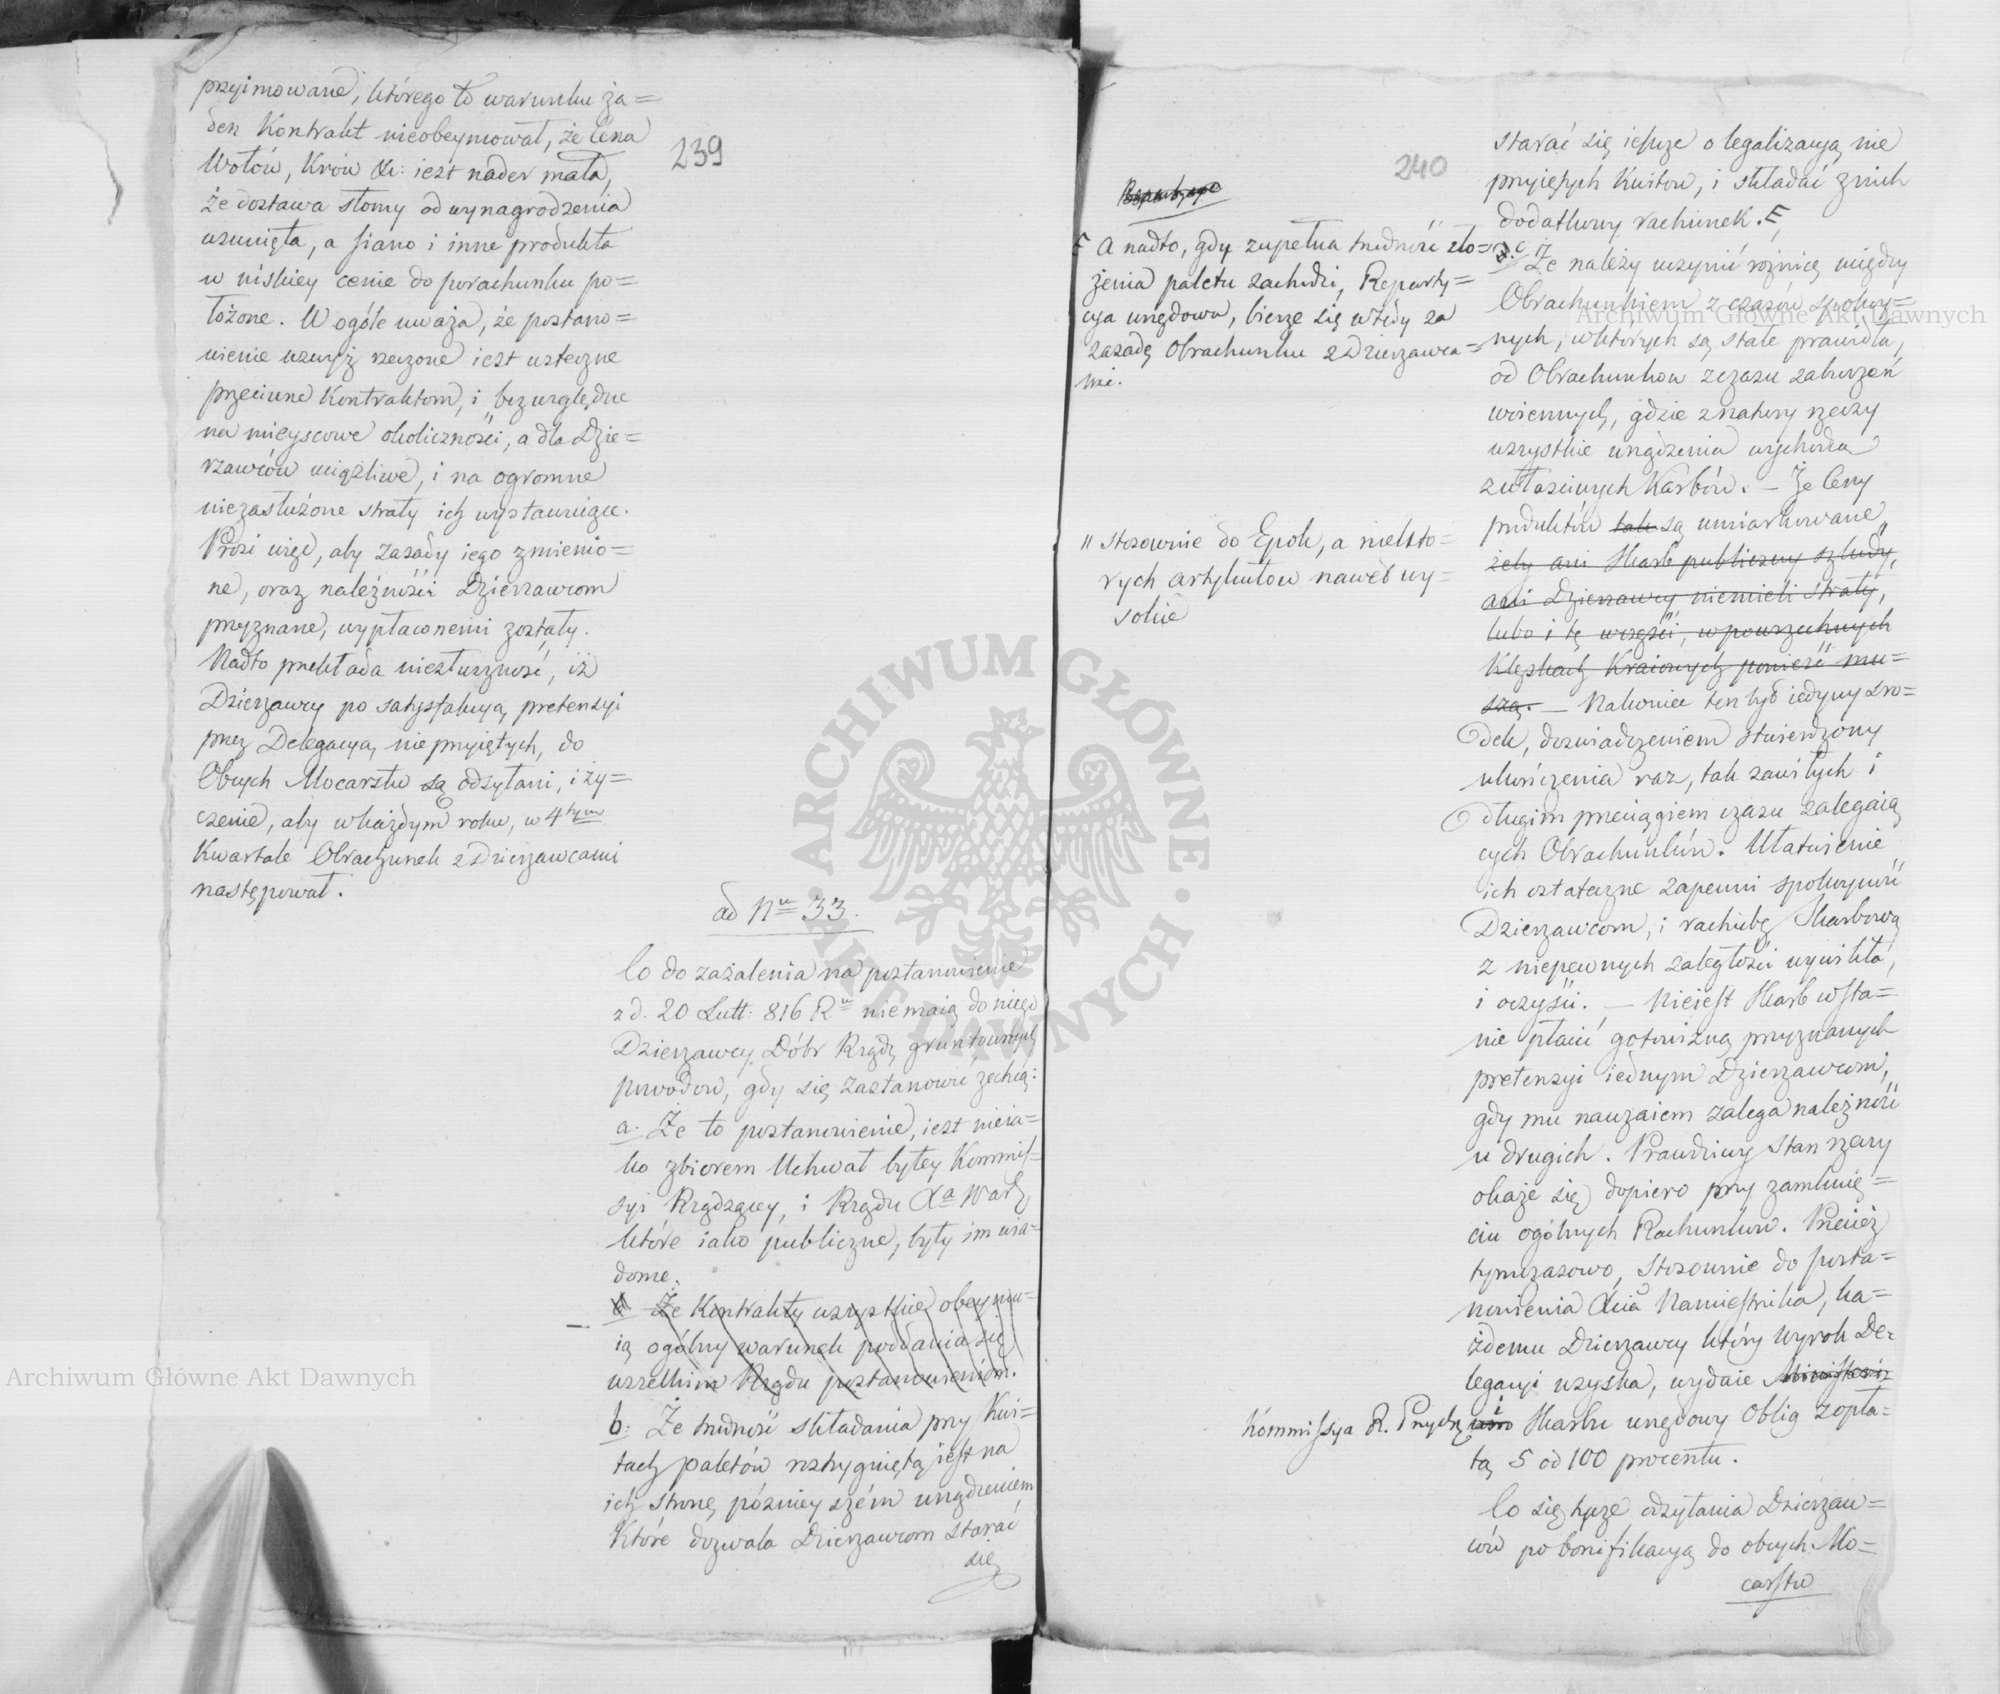 239
przyimowane, którego to warunku ża=
den Kontrakt nieobeymował, że Cena
Wołów, Krów &c: iest nader mała,
że dostawa słomy od wynagrodzenia
usunięta, a siano i inne produkta
w niskiey cenie do porachunku po=
łożone. W ogóle uważa, że postano=
wienie wzwyż rzeczone iest wsteczne
przeciwne Kontraktom, i bezwzględne
na mieyscowe okoliczności, a dla Dzie=
rzawców uciążliwe, i na ogromne
niezasłużone straty ich wystawiaiące.
Prosi więc, aby zasady iego zmienio=
ne, oraz należności Dzierzawcom
przyznane, wypłaconemi zostały.
Nadto przekłada niesłuszność, iż
Dzierzawcy po satysfakcyą pretensyi
przez Delegacyą nie przyiętych, do
Obcych Mocarstw są odsyłani, i ży=
czenie, aby w każdym roku, w 4tym
Kwartale Obrachunek z Dzierzawcami
następował.
ad Nu 33.
Co do zażalenia na postanowienie
z d. 20 Lutt: 816 Ru nie maią do niego
Dzierzawcy Dóbr Rządo gruntownych
powodów, gdy się zastanowić zechcą:
a. Że to postanowienie, iest nieia=
ko zbiorem Uchwał byłey Kommis=
syi Rządzącey, i Rządu Xa Warsz
które iako publiczne, były im wia=
dome.
Że Kontrakty wszystkie obeymu=
ią ogólny warunek poddania się
wszelkim Rządu postanowieniom.
b: Że trudność składania przy Kwi=
tach paletów rozstrzygniętą iest na
ich stronę późnieyszém urządzeniem
Które dozwala Dzierzawcom starać
się
240
F A nadto, gdy zupełna trudność zło=
żenia paletu zachodzi, Reparty=
cya urzędowa, bierze się wtedy za
zasadę Obrachunku z Dzierzawca=
mi.
" stosownie do Epok, a niektó=
rych artykułów nawet wy=
sokie
Kommissya R. Przych. i
starać się ieszcze o legalizacyą nie
przyiętych Kwitów, i składać z nich
dodatkowy rachunek. F
c. Że należy uczynić różnicę między
Obrachunkiem z czasów spokoy=
nych, w których są stałe prawidła,
od Obrachunków z czasu zaburzeń
woiennych, gdzie z natury rzeczy
wszystkie urządzenia wychodzą
z właściwych Karbów. — Że Ceny
produktów tak są umiarkowane "
żeby ani Skarb publiczny szkody,
ani Dzierzawcy niemieli straty,
lubo i tę w części, w powszechnych
Klęskach Kraiowych ponieść mu=
szą. — Nakoniec ten był iedyny śro=
dek, doświadczeniem stwierdzony
ukończenia raz, tak zawiłych i
długim przeciągiem czasu zalegaią
cych Obrachunków. Ułatwienie
ich ostateczne zapewni spokoyność
Dzierzawcom, i rachubę Skarbową
z niepewnych zaległości wywikła,
i oczyści. — Nieiest Skarb w sta=
nie płacić gotowizną przyznanych
pretensyi iednym Dzierzawcom,
gdy mu nawzaiem zalega należność
u drugich. Prawdziwy stan rzeczy
okaże się dopiero przy zamknię=
ciu ogólnych Rachunków. Przecież
tymczasowo, stosownie do posta=
nowienia Xcia Namiestnika, ka=
żdemu Dzierzawcy który wyrok De=
legacyi uzyska, wydaie Ministeri=
um Skarbu urzędowy Oblig z opła=
tą 5 od 100 procentu.
Co się tycze odsyłania Dzierzaw=
ców po bonifikacyą do obcych Mo=
carstw
Archiwum Główne Akt Dawnych
Archiwum Główne Akt Dawnych
ARCHIWUM GŁÓWNE · AKT DAWNYCH ·